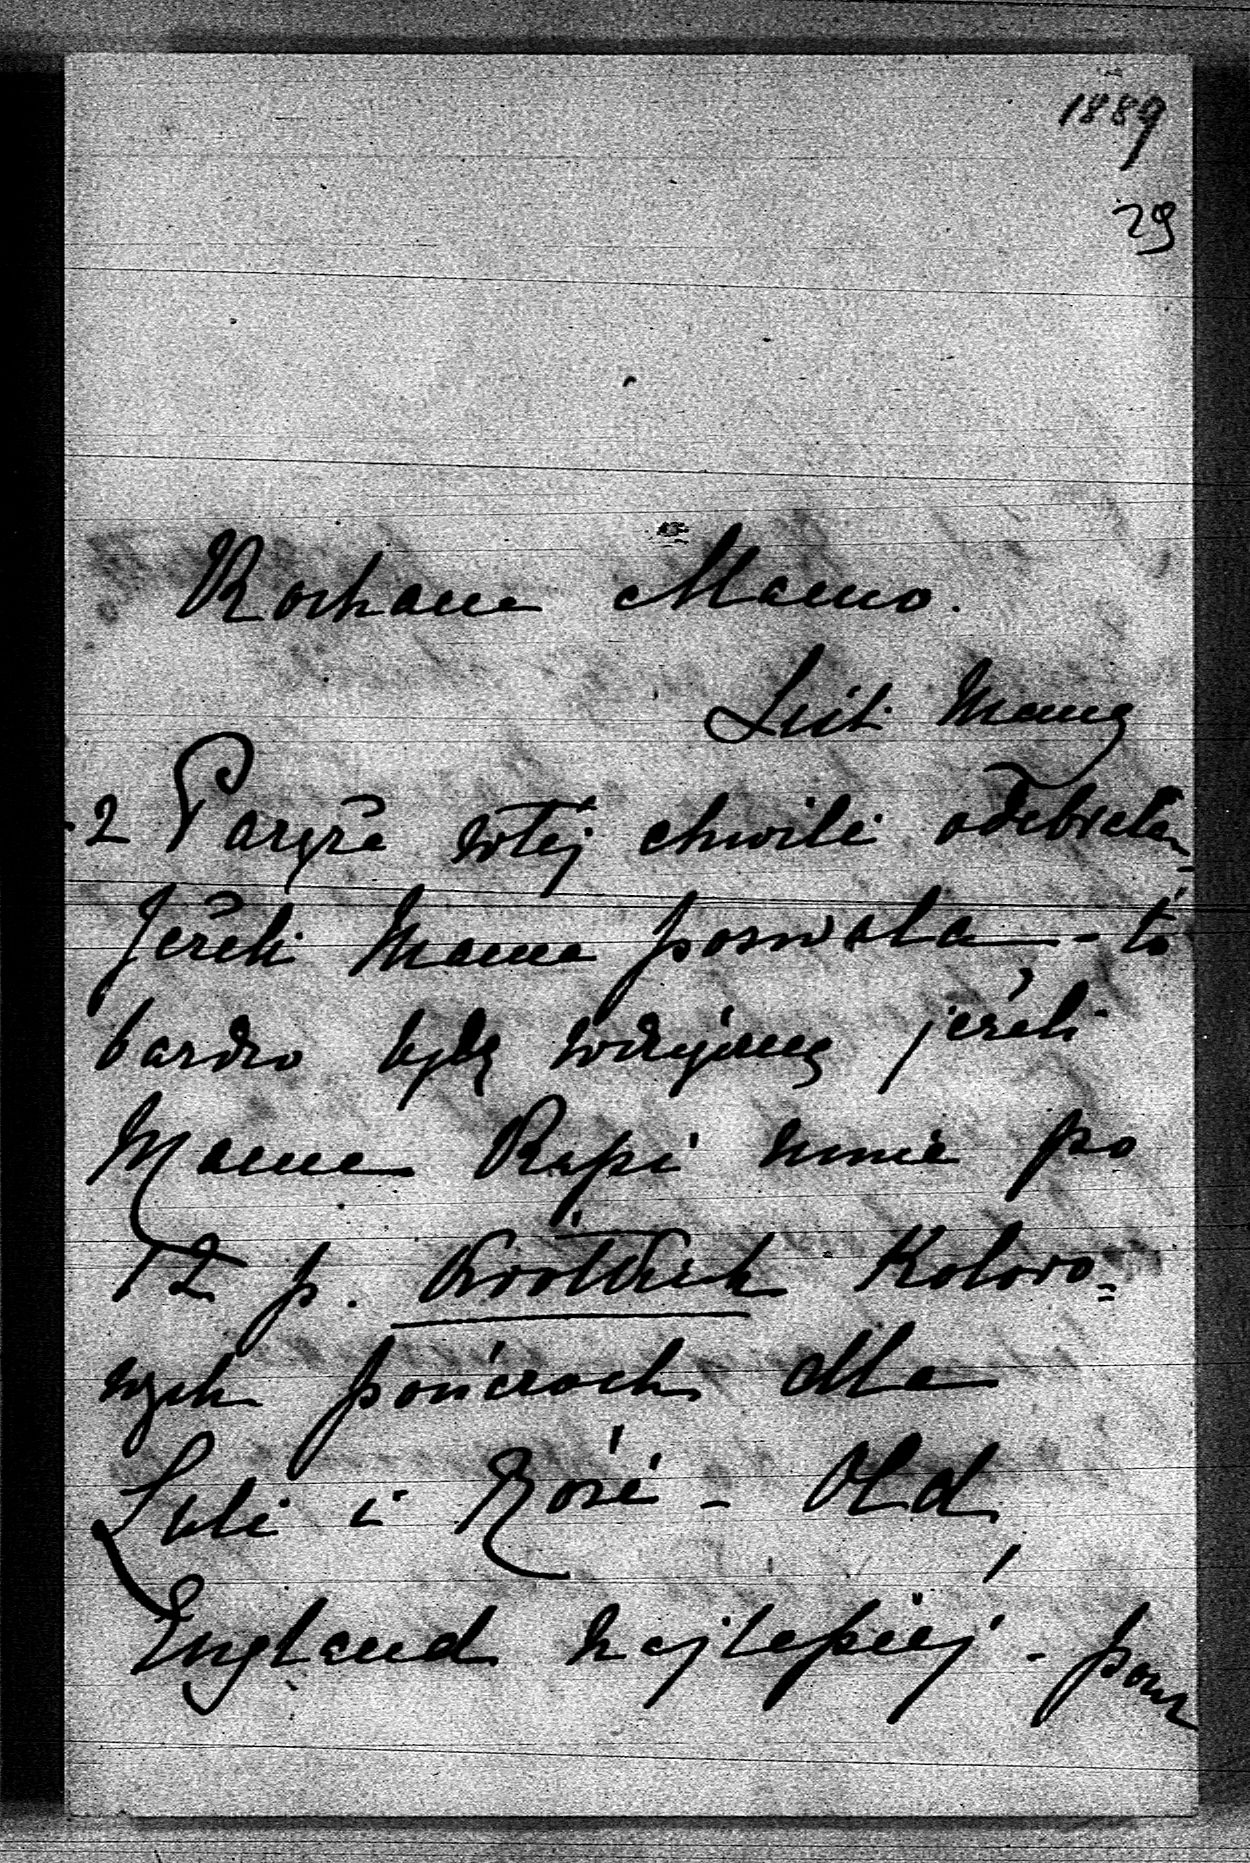 1889
29
Kochana Mamo.
List Mamy
z Paryża w tej chwili odebrałam
Jeżeli Mama pozwala - to
bardzo będę wdzięczną jeżeli
Mama Kupi mnie po
12 p. Krótkich Koloro=
wych pończoch dla
Luli i Rózi - Old
England najlepiej - pour